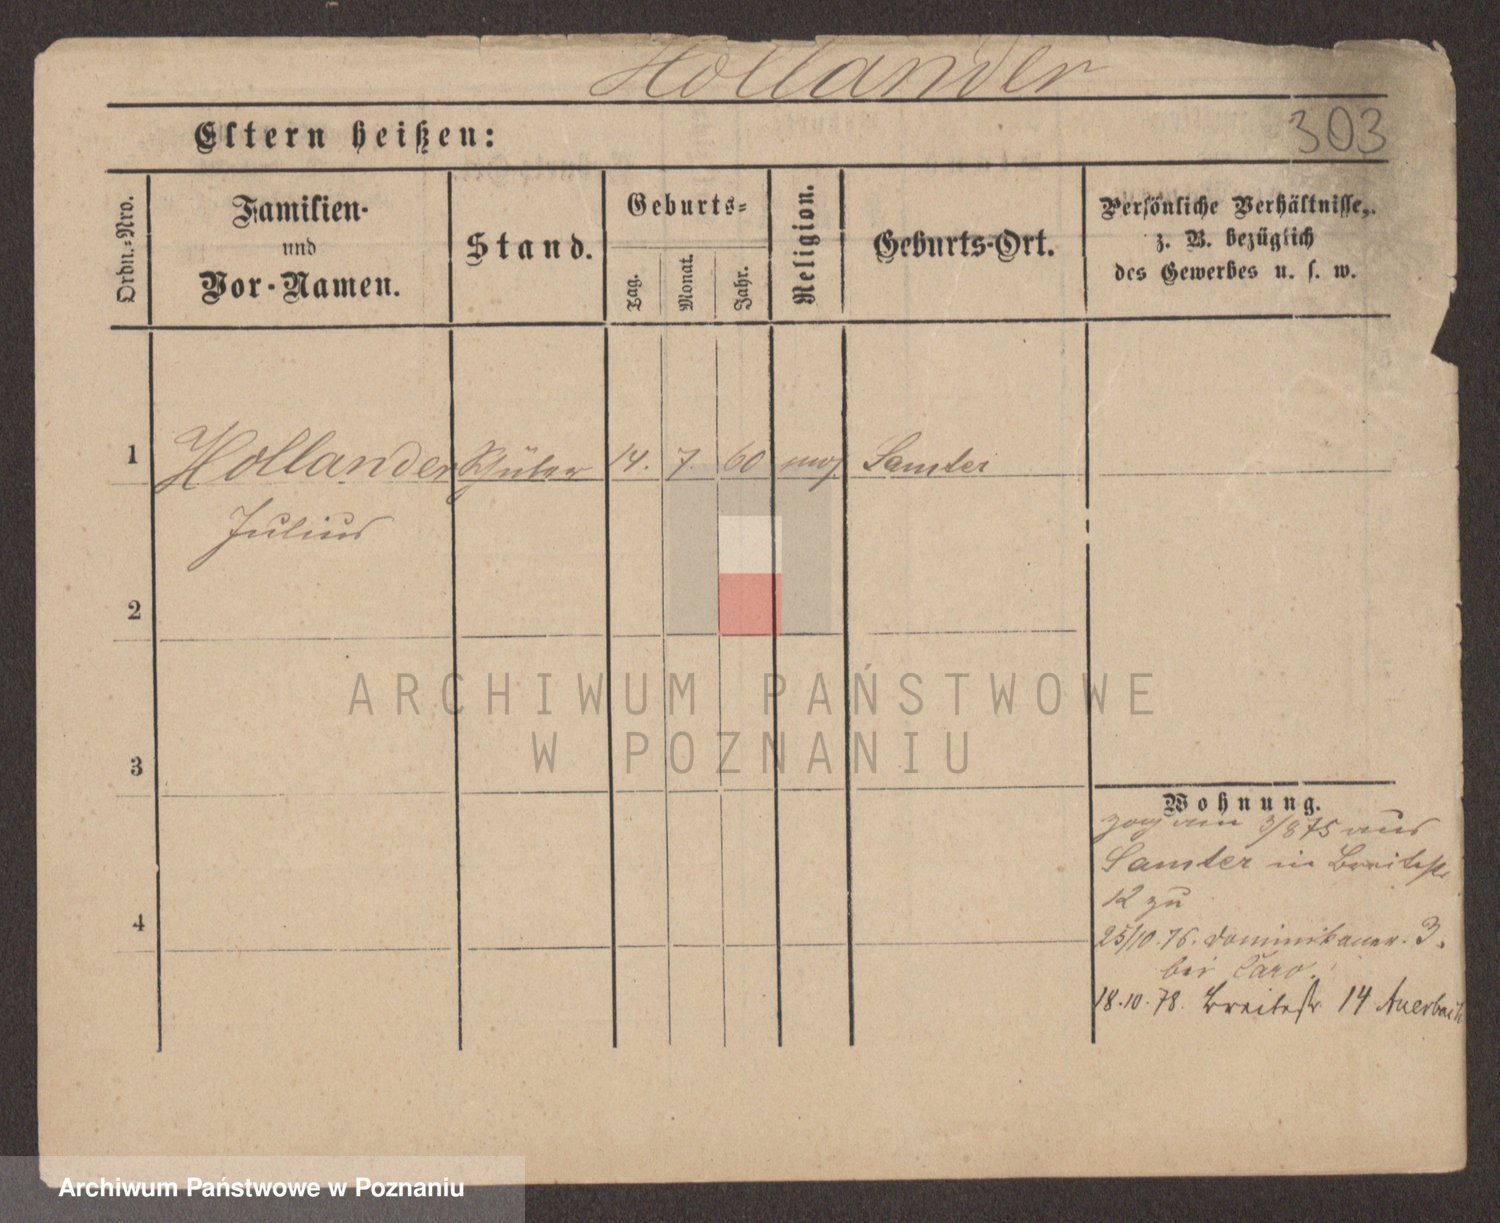 Hollander
303
Eltern heißen:
Ordn.-Nro.
Familien-
und
Vor-Namen.
Stand.
Geburts-
Tag.
Monat.
Jahr.
Religion.
Geburts-Ort.
Persönliche Verhältnisse,
z. B. bezüglich
des Gewerbes u. s. w.
1 Hollander Schüler 14. 7. 60 mos Samter
Julius
2
3
4
Wohnung.
zog am 3/8 75 aus
Samter in Breitestr.
12 zu
25/10.76. Dominikaner. 3.
bei Caro.
18.10.78. Breitestr 14 Auerbach
ARCHIWUM PAŃSTWOWE
W POZNANIU
Archiwum Państwowe w Poznaniu